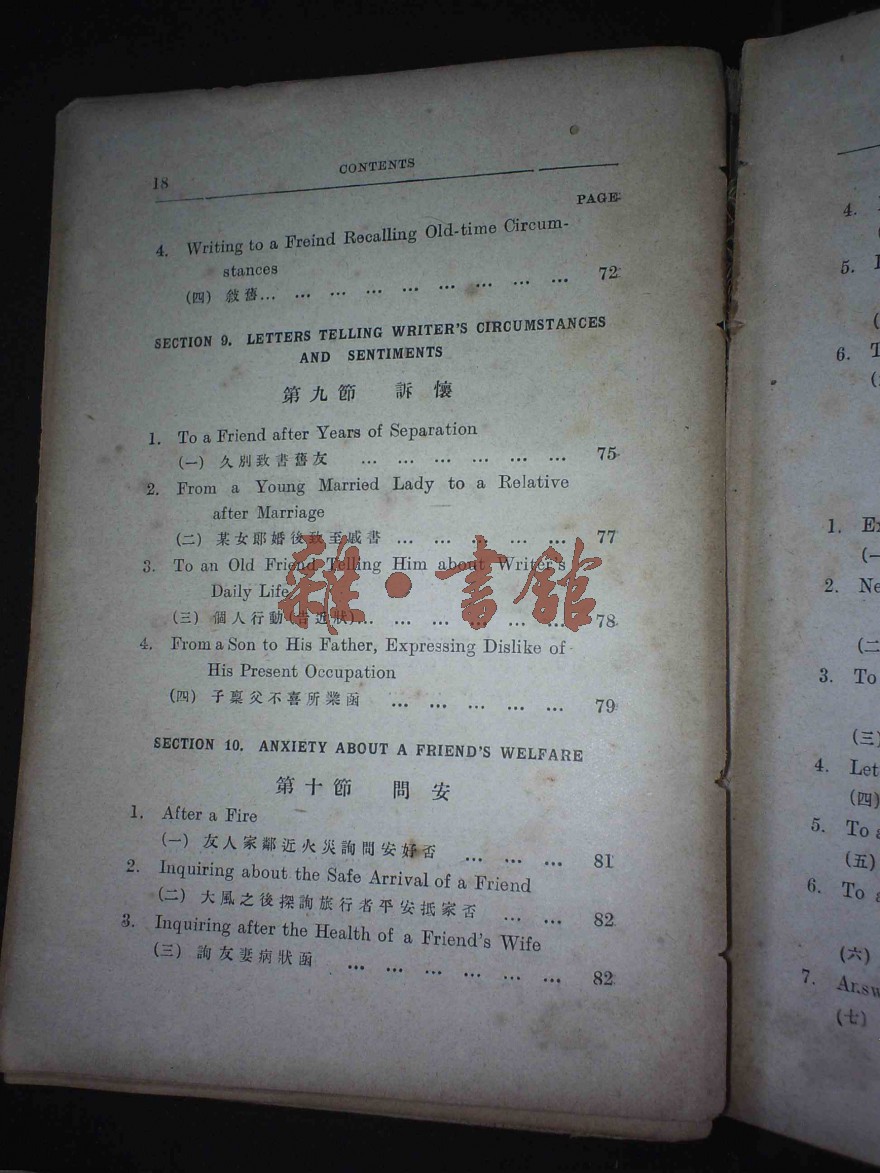 18 CONTENTS
PAGE
4. Writing to a Freind Recalling Old-time Circum-
stances
(四) 敍舊... ... ... ... ... ... ... ... ... 72
SECTION 9. LETTERS TELLING WRITER'S CIRCUMSTANCES
AND SENTIMENTS
第九節 訴懷
1. To a Friend after Years of Separation
(一) 久別致書舊友 ... ... ... ... ... ... 75
2. From a Young Married Lady to a Relative
after Marriage
(二) 某女郞婚後致至戚書 ... ... ... ... ... 77
3. To an Old Friend Telling Him about Writer's
Daily Life
(三) 個人行動(告近狀)... ... ... ... ... ... 78
4. From a Son to His Father, Expressing Dislike of
His Present Occupation
(四) 子稟父不喜所業函 ... ... ... ... ... 79
SECTION 10. ANXIETY ABOUT A FRIEND'S WELFARE
第十節 問安
1. After a Fire
(一) 友人家鄰近火災詢問安好否 ... ... ... 81
2. Inquiring about the Safe Arrival of a Friend
(二) 大風之後探詢旅行者平安抵家否 ... ... 82
3. Inquiring after the Health of a Friend's Wife
(三) 詢友妻病狀函 ... ... ... ... ... ... 82
雜·書館
4.
5.
6.
1.
(一
2. Ne
(二
3. To
(三)
4. Let
(四)
5. To a
(五)
6. To a
(六)
7. Answ
(七)